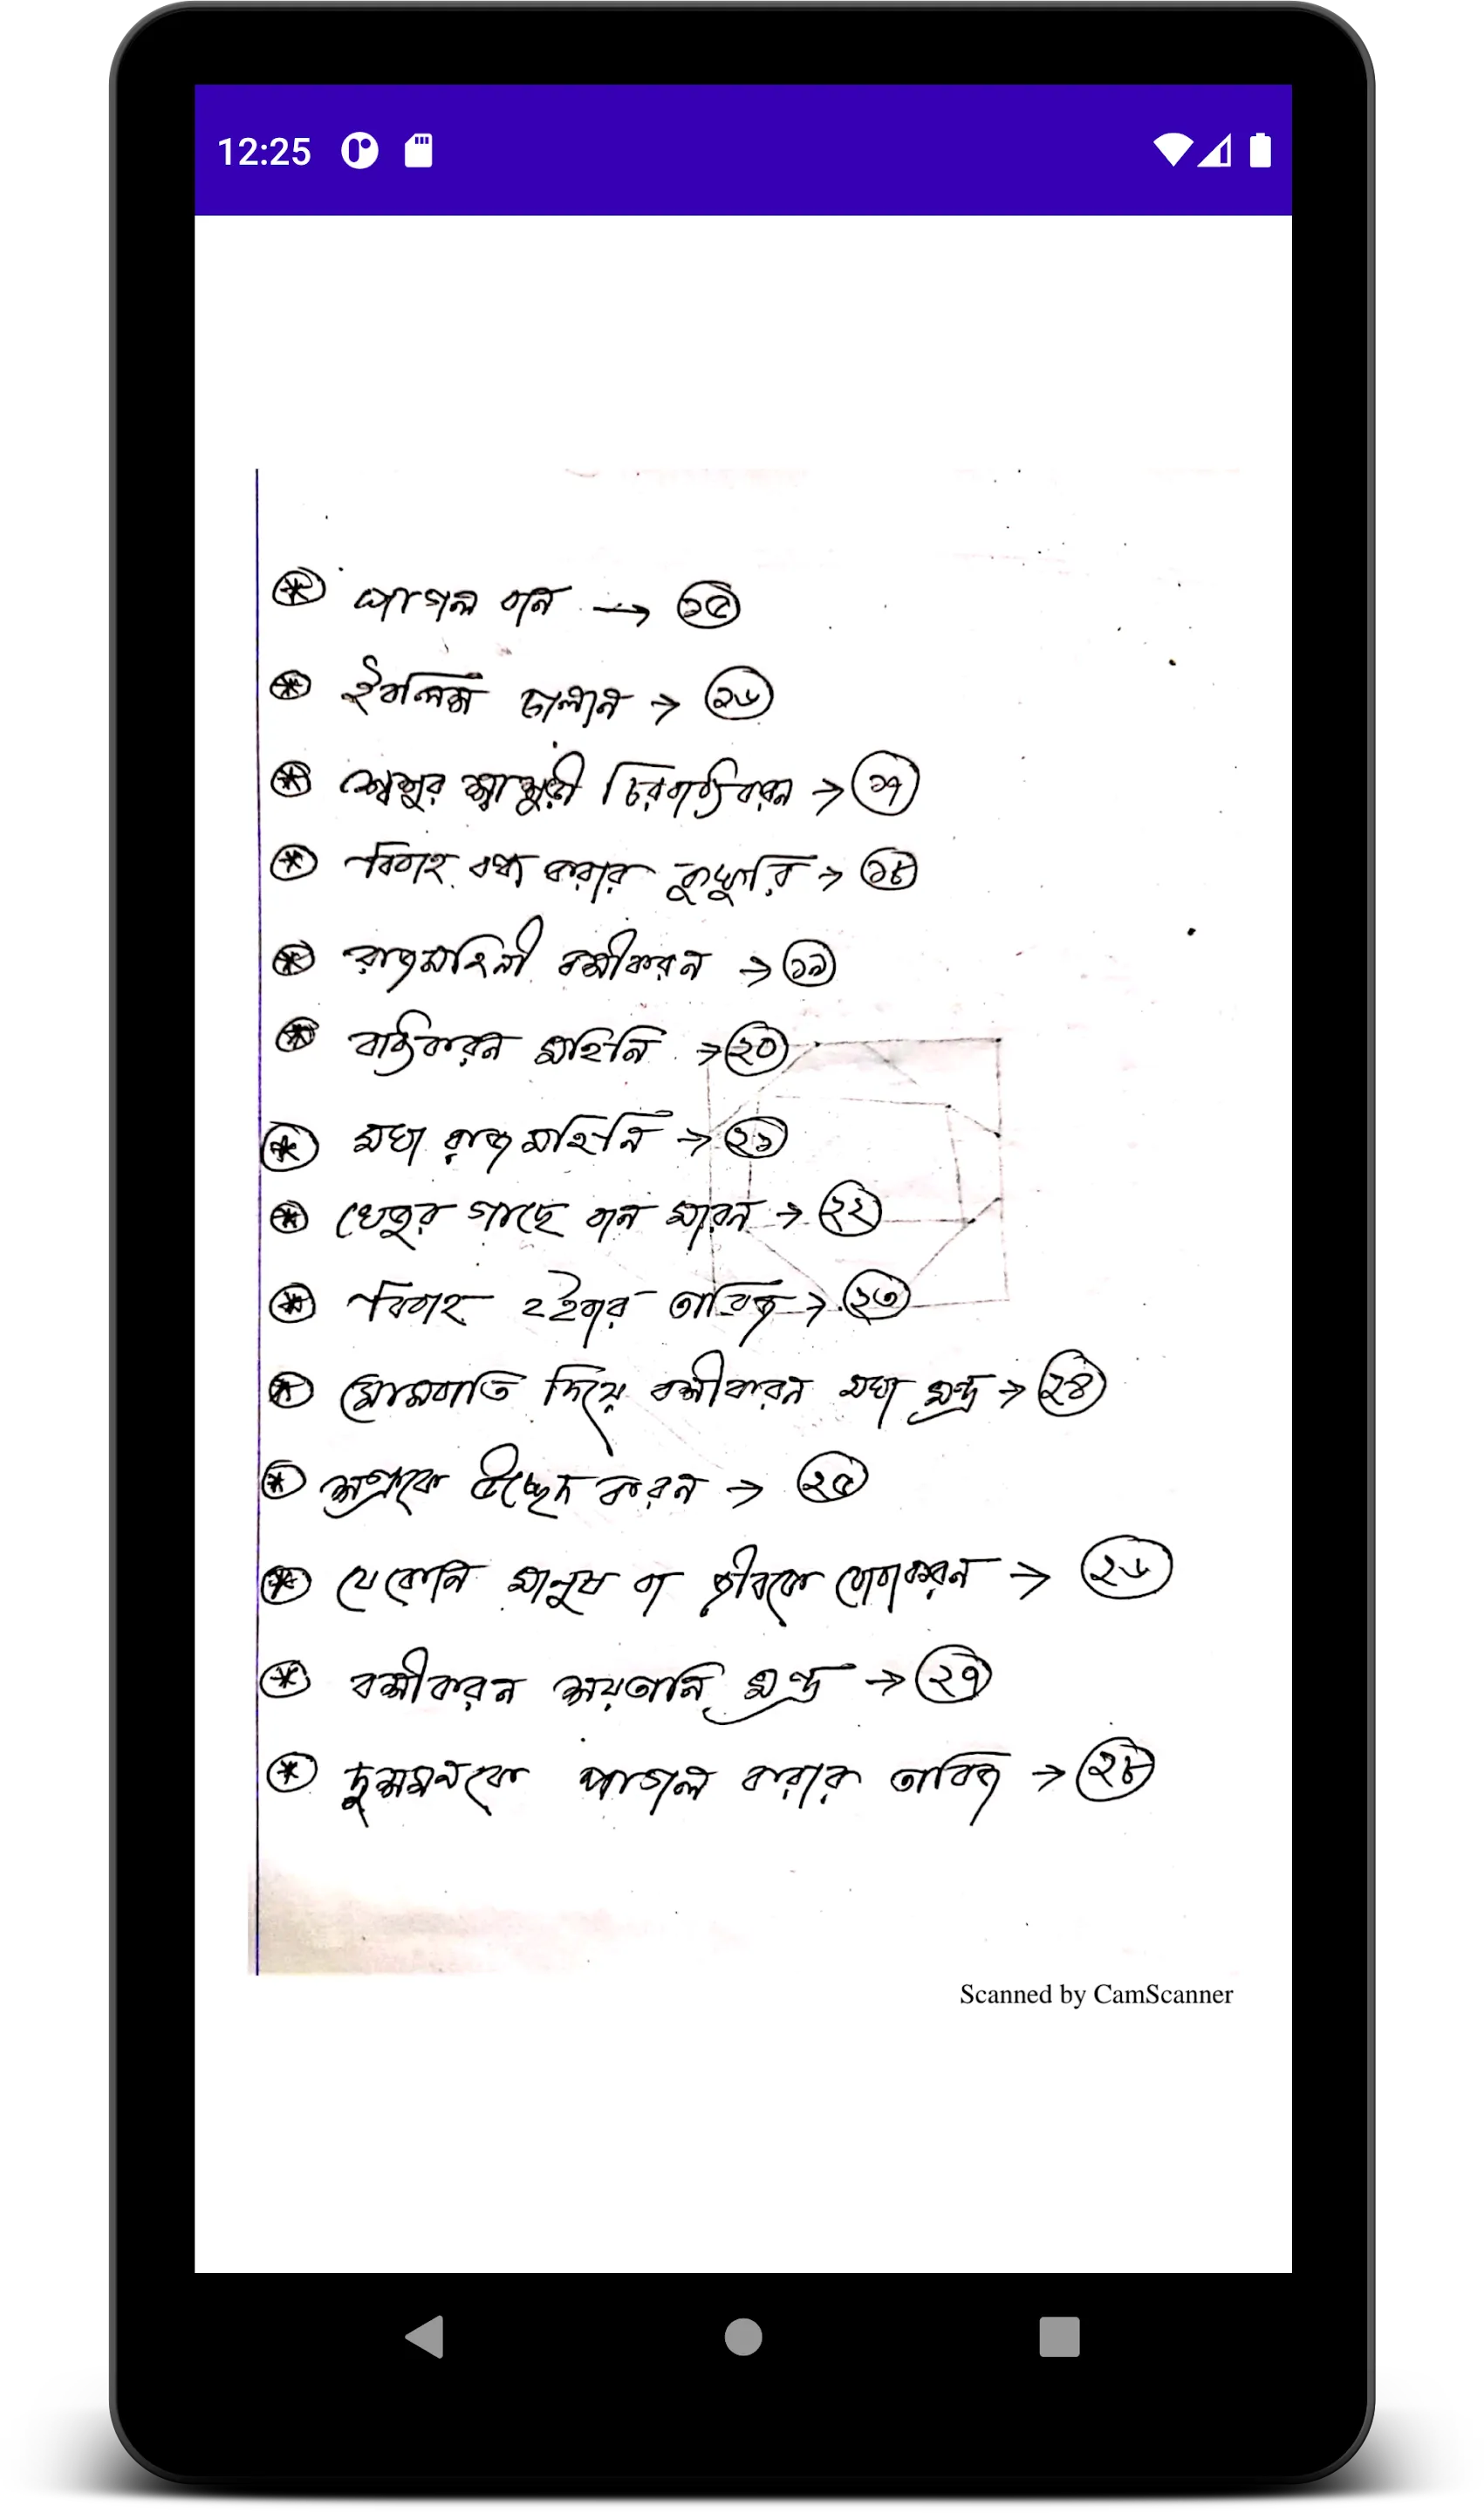 12:25
* পাগল বান → ১৫
* ইবলিস চালান → ২৬
* শ্বেশুর শ্বাশুরী → ১৭
* বিবাহ বন্ধ করার কুফুরি → ১৮
* রাজমোহিনী বশীকরন → ১৯
* মোহিনি → ২০
* মহা রাজ মোহিনি → ২১
* খেজুর গাছে বান মারন → ২২
* বিবাহ হইবার তাবিজ → ২৩
* মোমবাতি দিয়ে বশীকারন মহা মন্ত্র → ২৪
* শত্রুকে উচ্ছেদ করন → ২৫
* যেকোনি মানুষ বা জীবকে বোবাকরন → ২৬
* বশীকারন শয়তানি মন্ত্র → ২৭
* দুশমনকে পাগল করার তাবিজ → ২৮
Scanned by CamScanner